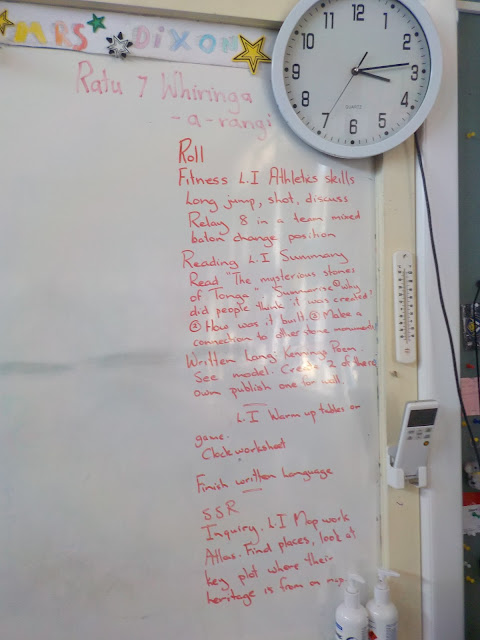 MRS DIXON
12
1
2
3
4
5
6
7
8
9
10
11
QUARTZ
Ratu 7 Whiringa
-a-rangi
Roll
Fitness L.I Athletics skills
Long jump, shot, discuss
Relay 8 in a team mixed
baton change position
Reading L.I Summary
Read "The mysterious stones
of Tonga" Summarise ① why
did people think it was created?
② How was it built. ③ Make a
connection to other stone monuments
Written Lang: Kennings Poem.
See model. Create 2 of there
own publish one for wall.
L.I Warm up tables or
game.
Clock worksheet
Finish written Language
SSR
Inquiry. L.I Map work
Atlas. Find places, look at
key plot where their
heritage is from on map